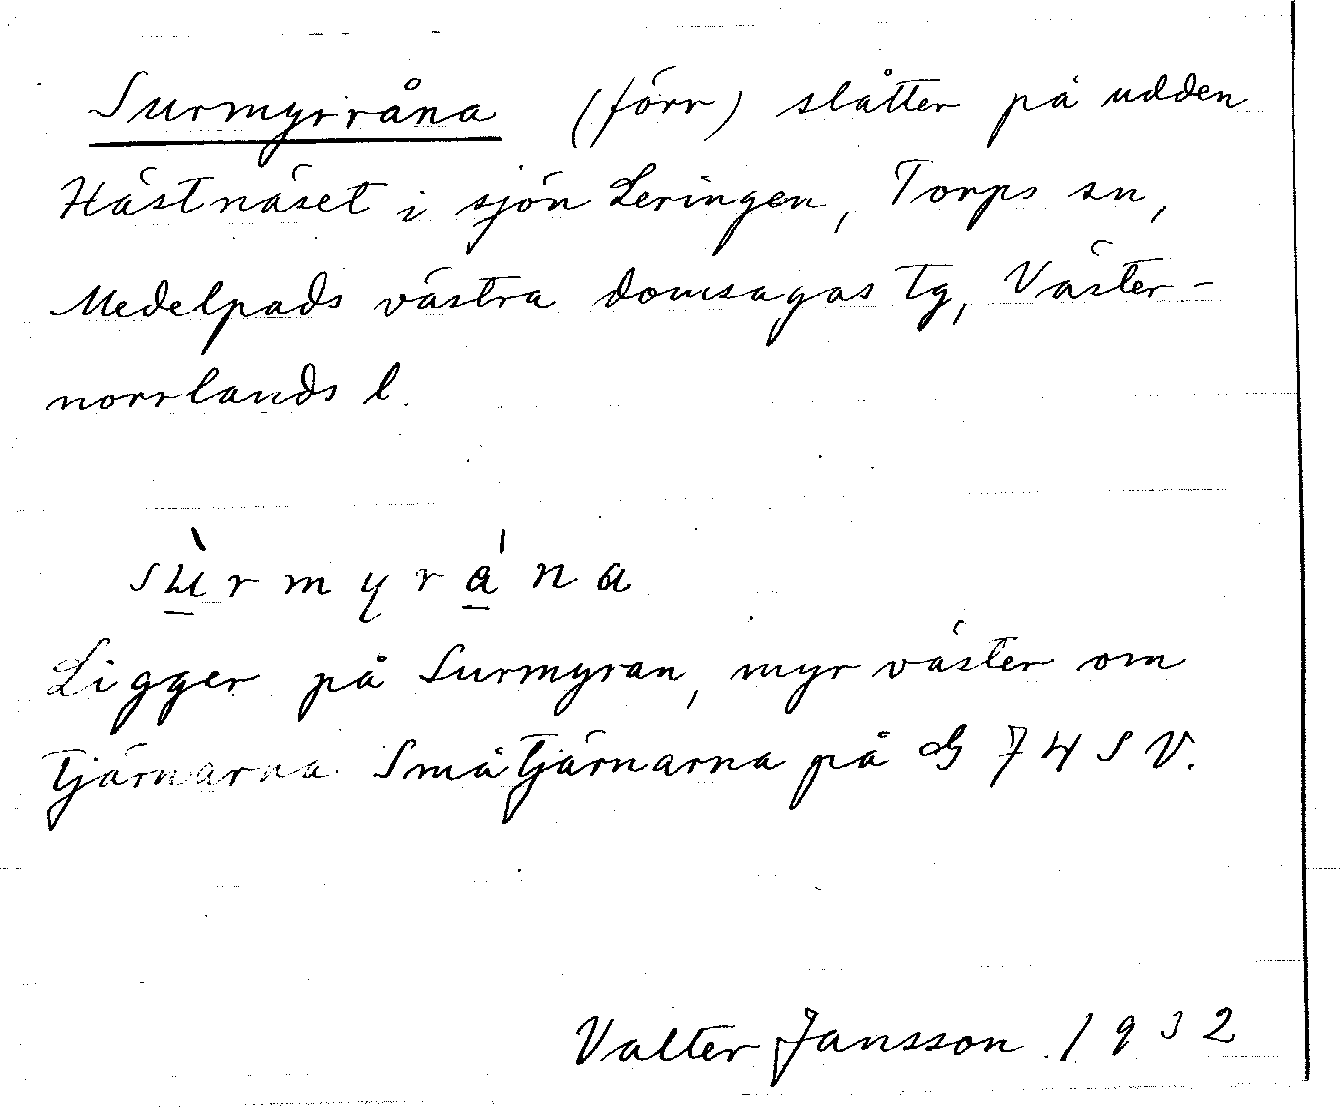 Surmyrråna (förr) slåtter på udden
Hästnäset i sjön Leringen, Torps sn,
Medelpads västra domsagas tg, Väster-
norrlands l.
sùrmyrána
Ligger på Surmyran, myr väster om
tjärnarna Småtjärnarna på G 74 SV.
Valter Jansson 1932